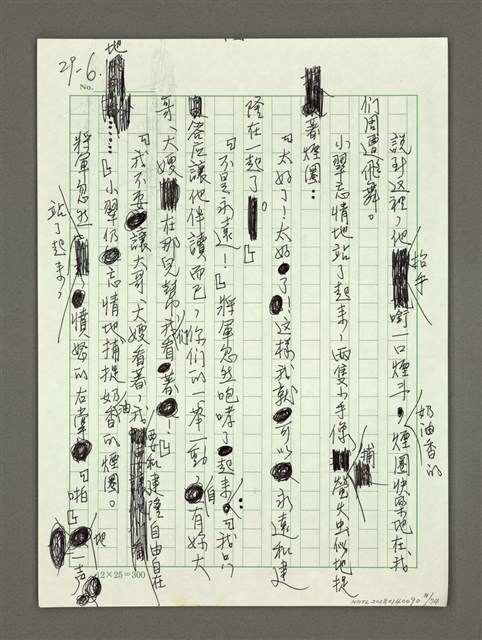 29-6.
No.
說到這裡，他抬手嘬一口煙斗，奶油香的煙圈快樂地在我
們周遭飛舞。
小翠忘情地站了起來，兩隻小手像捕螢火虫似地捉
著煙圈：
「太好了！太好了！這樣我就可以永遠和建
隆在一起了。」
「不是永遠！」將軍忽然咆哮了起來：「我只
答应讓他伴讀而已，你們的一舉一動，自有妳大
哥、大嫂在那兒幫我看著你們！」
「我不要讓大哥、大嫂看著，我要和建隆自由自在
地……」小翠仍忘情地捕捉奶油香的煙圈。
將軍忽然站了起來，憤怒的右掌「啪」地一声
12×25=300
NMTL20180140090 11/74